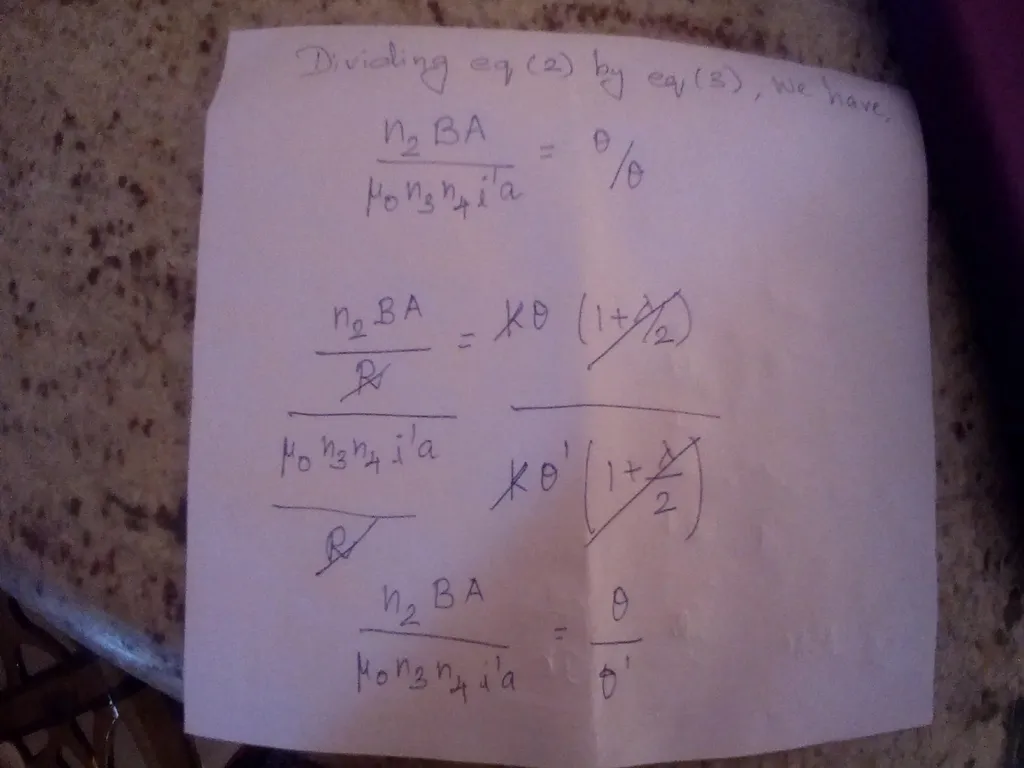 Dividing eq (2) by eq (3), we have,
n₂ BA / μ₀ n₃ n₄ i'a = θ/θ
n₂ BA / R / μ₀ n₃ n₄ i'a / R = kθ (1+λ/2) / kθ' (1+λ/2)
n₂ BA / μ₀ n₃ n₄ i'a = θ / θ'